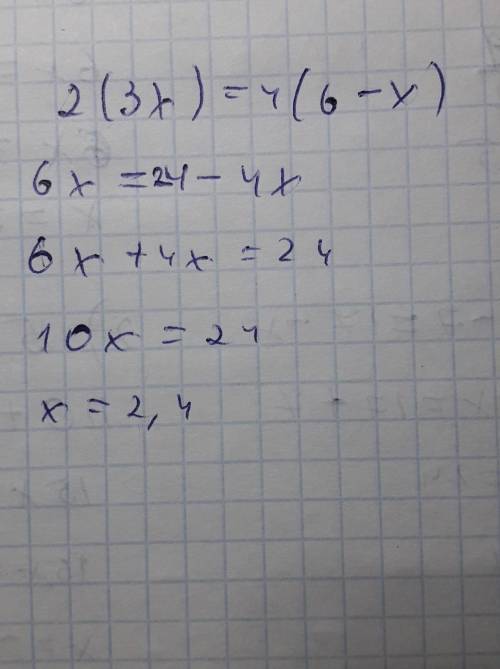 2(3x)=4(6-x)
6x=24-4x
6x+4x=24
10x=24
x=2,4